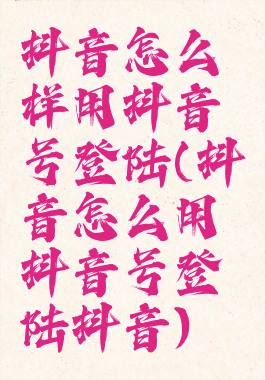 抖音怎么
样用抖音
号登陆(抖
音怎么用
抖音号登
陆抖音)